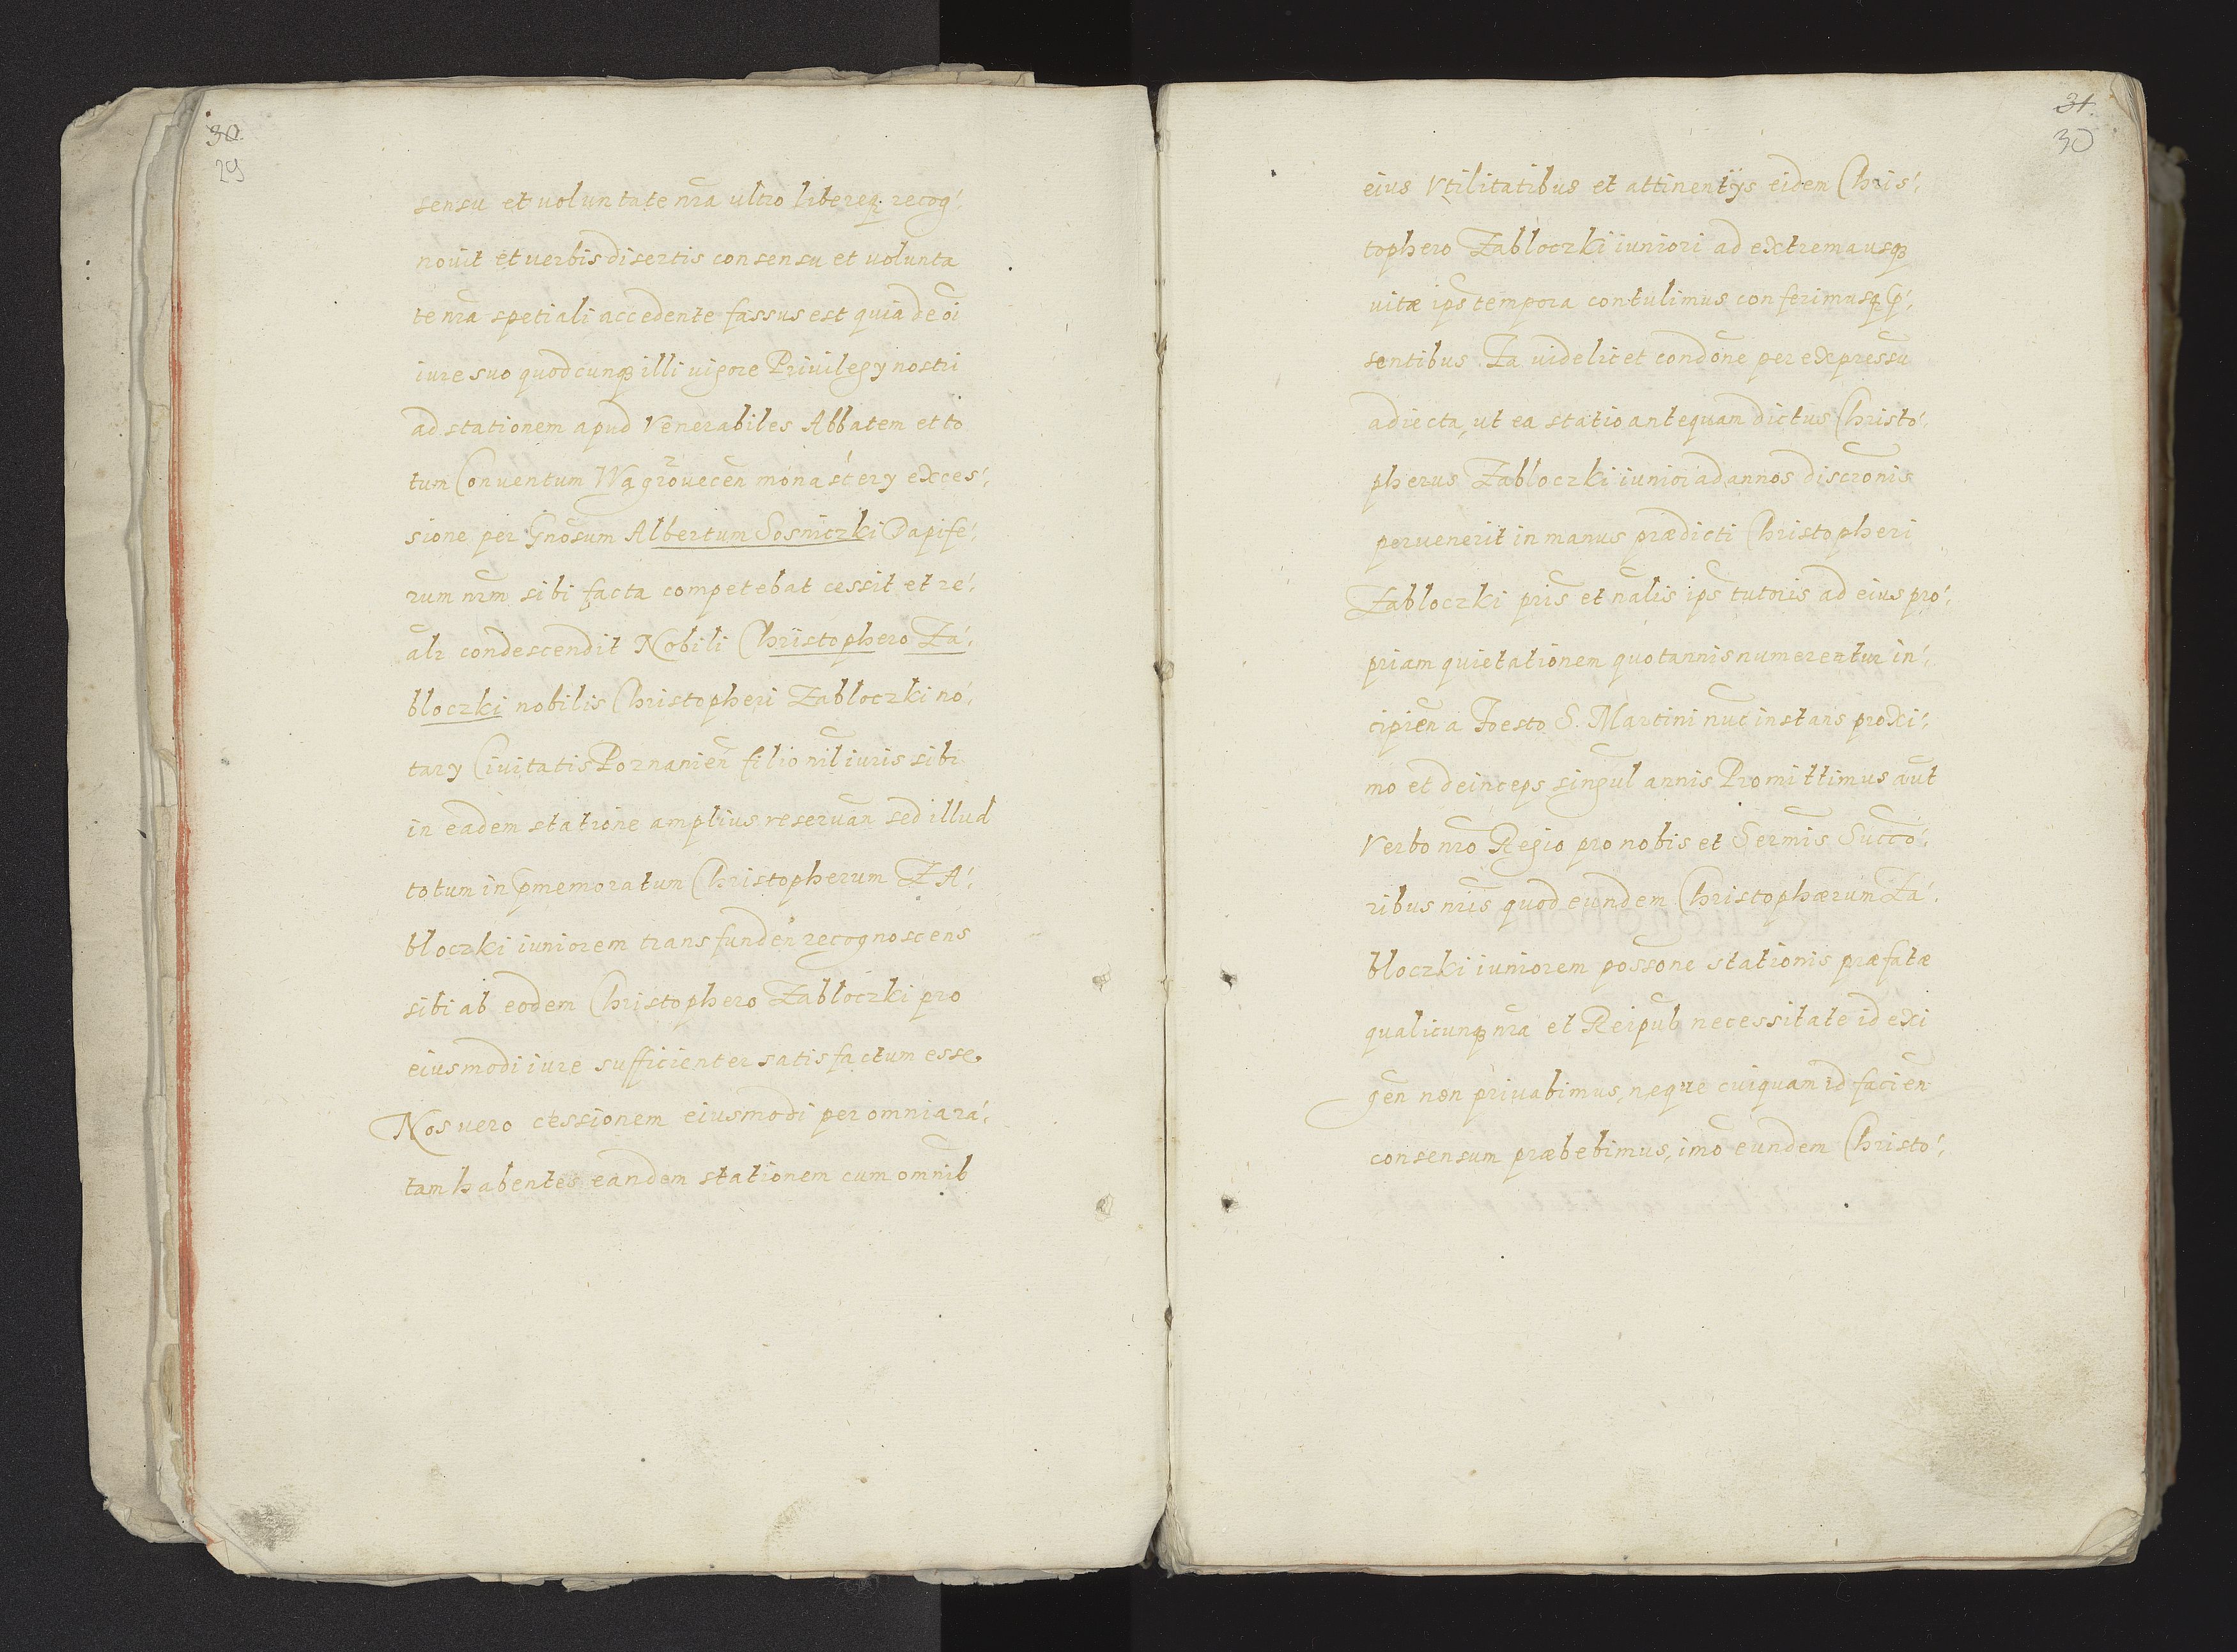 30.
29
sensu et voluntate nr̃a ultro libereq; recog-
novit et verbis disertis consensu et volunta
te nr̃a spetiali accedente fassus est quia de oĩ
iure suo quodcunq; illi vigore Privilegy nostri
ad stationem apud Venerabiles Abbatem et to
tum Conventum Wągrovecen̄ monastery exces-
sione per Gn̄osum Albertum Sosniczki Dapife-
rum nr̃m sibi facta competebat cessit et re-
alr̃ condescendit Nobili Christophero Za-
bloczki nobilis Christopheri Zabloczki no-
tary Civitatis Poznanien̄ filio nil iuris sibi
in eadem statione amplius reservan̄ sed illud
totum in p̄memoratum Christopherum ZA-
bloczki iuniorem transfunden̄ recognoscens
sibi ab eodem Christophero Zabloczki pro
eiusmodi iure sufficienter satisfactum esse.
Nos vero cessionem eiusmodi per omnia ra-
tam habentes eandem stationem cum omnib̄
31.
30
eius Utilitatibus et attinentÿs eidem Chris-
tophero Zabloczki iuniori ad extrema usq;
vitæ ips̄ tempora contulimus conferimusq; p̄-
sentibus. Ta videlicet condōne per expressū
adiecta, ut ea statio antequam dictus Christo-
pherus Zabloczki iunior ad annos discrōnis
pervenerit in manus prædicti Christopheri
Zabloczki pr̄is et nālis ips̄ tutoris ad eius pro-
priam quietationem quotannis numerentur in-
cipien̄ a Foesto S. Martini nūc instans proxi-
mo et deinceps singul̄ annis Promittimus aūt
Verbo nr̃o Regio pro nobis et Sermīs Succō-
ribus nr̃is quod eundem Christophærum Za-
bloczki iuniorem possōne stationis præfatæ
qualicunq; nr̃a et Reipub̄ necessitate id exi
gen̄ non privabimus, neque cuiquam id facien̄
consensum præbebimus, imo eundem Christo-